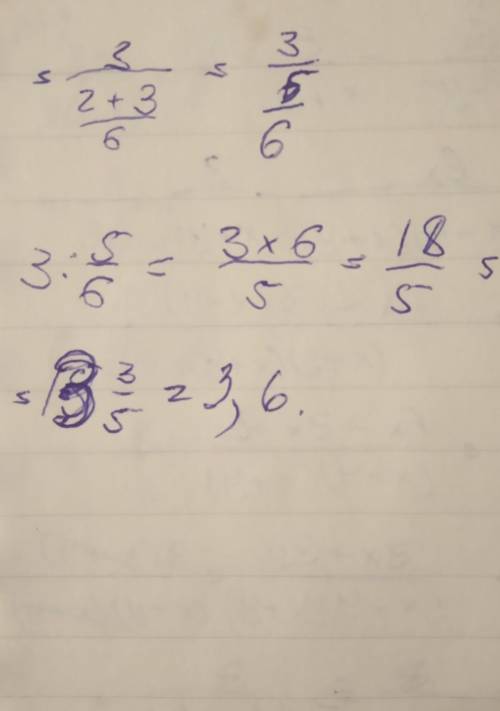 = 3/((2+3)/6) = 3/(5/6)
3 : 5/6 = (3×6)/5 = 18/5 =
= 3 3/5 = 3,6.